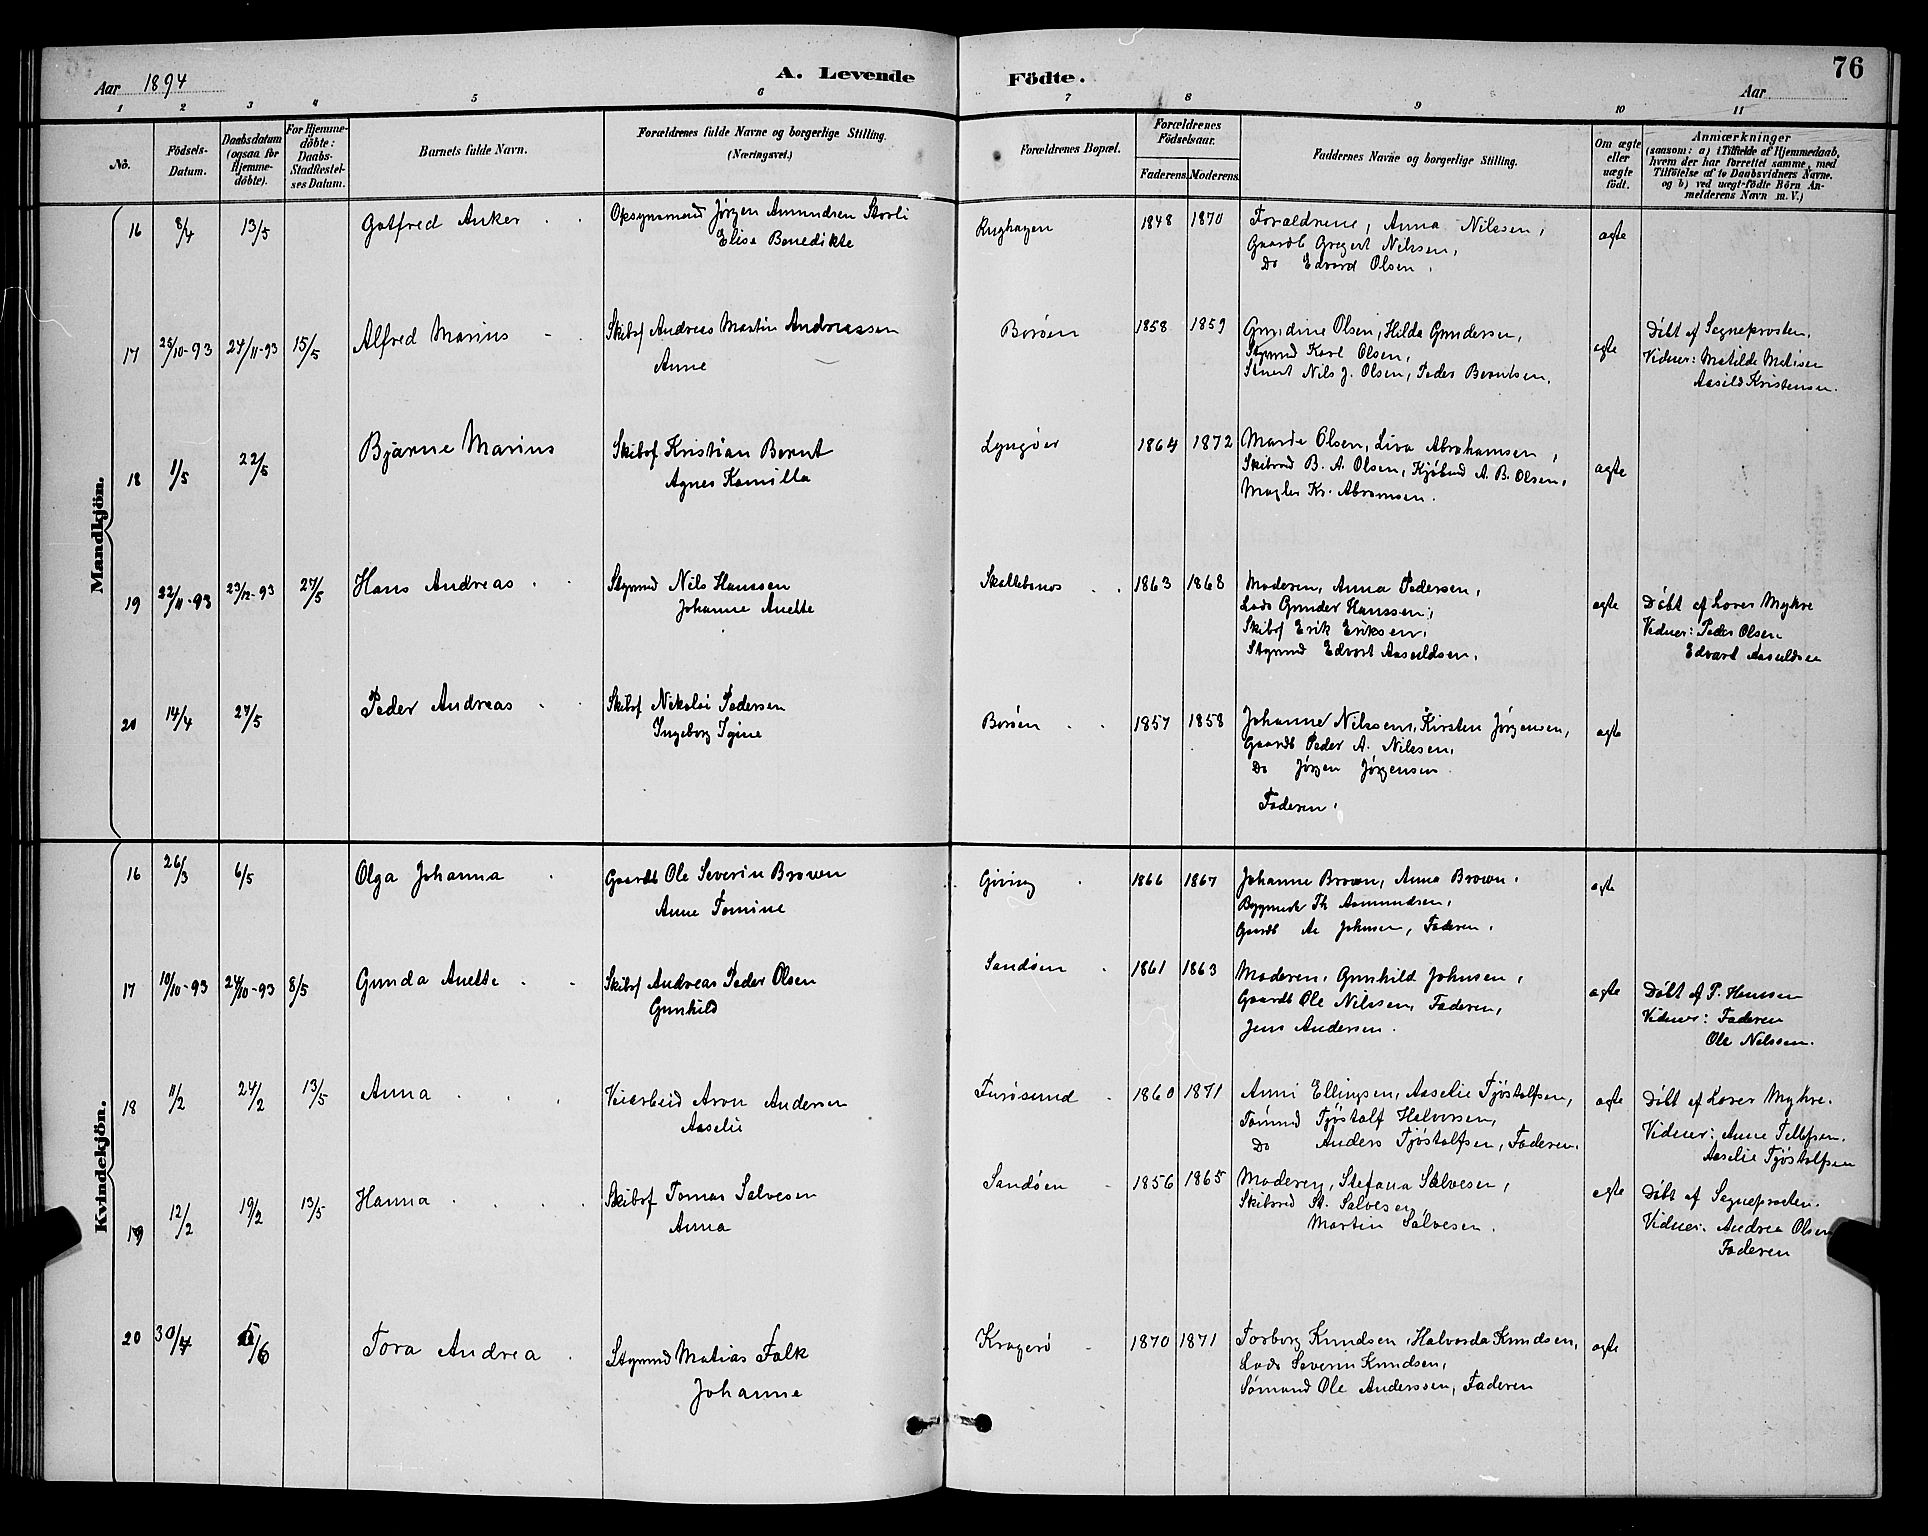 Aar 1894
A. Levende
Födte.
76
Aar
1 2 3 4 5 6 7 8 9 10 11
No.
Födsels-
Datum.
Daabsdatum
(ogsaa for
Hjemme-
döbte).
For Hjemme-
döbte:
Daabs-
Stadfæstel-
ses Datum.
Barnets fulde Navn.
Forældrenes fulde Navne og borgerlige Stilling.
(Næringsvei.)
Forældrenes Bopæl.
Forældrenes
Födselsaar.
Faderens. Moderens.
Faddernes Navne og borgerlige Stilling.
Om ægte
eller
uægte
födt.
Anmærkninger
(saasom: a) i Tilfælde af Hjemmedaab,
hvem der har forrettet samme, med
Tilföielse af to Daabsvidners Navne.
og b) ved uægt-födte Börn An-
melderens Navn m. V.)
Mandkjön.
16 8/4 13/5 Gotfred Anker Opsynsmand Jørgen Amundsen Stovli
Elise Benedikte
1848 1870 Forældrene, Anna Nilssen,
Gaardb Gregert Nilssen,
Do Edvard Olsen.
ægte
17 25/10-93 24/11-93 15/5 Alfred Marius Skibsf Andreas Martin Andreassen
Anne
Borøen 1858 1859 Gundine Olsen, Hilda Gundersen,
Stymd Karl Olsen,
Nils J. Olsen, Peder Berntsen.
ægte
Døbt af Sogneprosten,
Vidner: Matilde
Aasild Kristensen.
18 1/5 22/5 Bjarne Marius Skibsf Kristian Bernt
Agnes Kamilla
Lyngøer 1864 1872 Marie Olsen, Liva Abrahamsen,
Skibsred B. A. Olsen, Kjøbmd A. B. Olsen,
Mægler Kr. Abramsen.
ægte
19 22/11-93 23/12-93 27/5 Hans Andreas Stymd Nils Hanssen
Johanne Anette
1863 1868 Moderen, Anna Pedersen,
Lods Gunder Hanssen,
Skibsf Erik Eriksen,
Stymd Edvart Aasuldsen.
ægte
Døbt af Lærer Mykre
Vidner: Peder Olsen
Edvart Aasuldsen
20 14/4 27/5 Peder Andreas Skibsf Nikolai Pedersen
Ingeborg
Borøen 1857 1858 Johanne Nilssen, Kirsten Jørgensen,
Gaardb Peder A. Nilssen,
Do Jørgen Jørgensen.
Faderen.
ægte
Kvindekjön.
16 26/3 6/5 Olga Johanna Gaardb Ole Severin Brown
Anne Tomine
Giving 1866 1867 Johanne Brown, Anna Brown.
Bygmester Th Aamundsen,
Gaardb Aa Johnsen, Faderen.
ægte
17 10/10-93 24/10-93 8/5 Gunda Anette Skibsf Andreas Peder Olsen
Gunhild
Sandøen 1861 1863 Moderen, Gunhild Johnsen,
Gaardb Ole Nilssen, Faderen,
Jens Andersen.
ægte
Døbt af P. Hanssen
Vidner: Faderen
Ole Nilssen.
18 11/2 24/2 13/5 Anna Veiarbeid Aron Andersen
Aaselie
Furøsund 1860 1871 Anni Ellingsen, Aaselie Tjøstolfsen,
Tømmd Tjøstolf Halvorsen,
Do Anders Tjøstolfsen, Faderen.
ægte
Døbt af Lærer Mykre.
Vidner: Anne Tellefsen.
Aaselie Tjøstolfsen
19 12/2 19/2 13/5 Hanna Skibsf Tomas Salvesen
Anna
Sandøen 1856 1865 Moderen, Stefana Salvesen,
Skibsred St. Salvesen
Martin Salvesen.
ægte
Døbt af Sogneprosten.
Vidner: Andrea Olsen
Faderen
20 30/4 /6 Tora Andrea Stymd Matias Falk
Johanne
Kragerø 1870 1871 Torborg Knudsen, Halvorda Knudsen,
Lods Severin Knudsen,
Sømand Ole Anderssen, Faderen
ægte